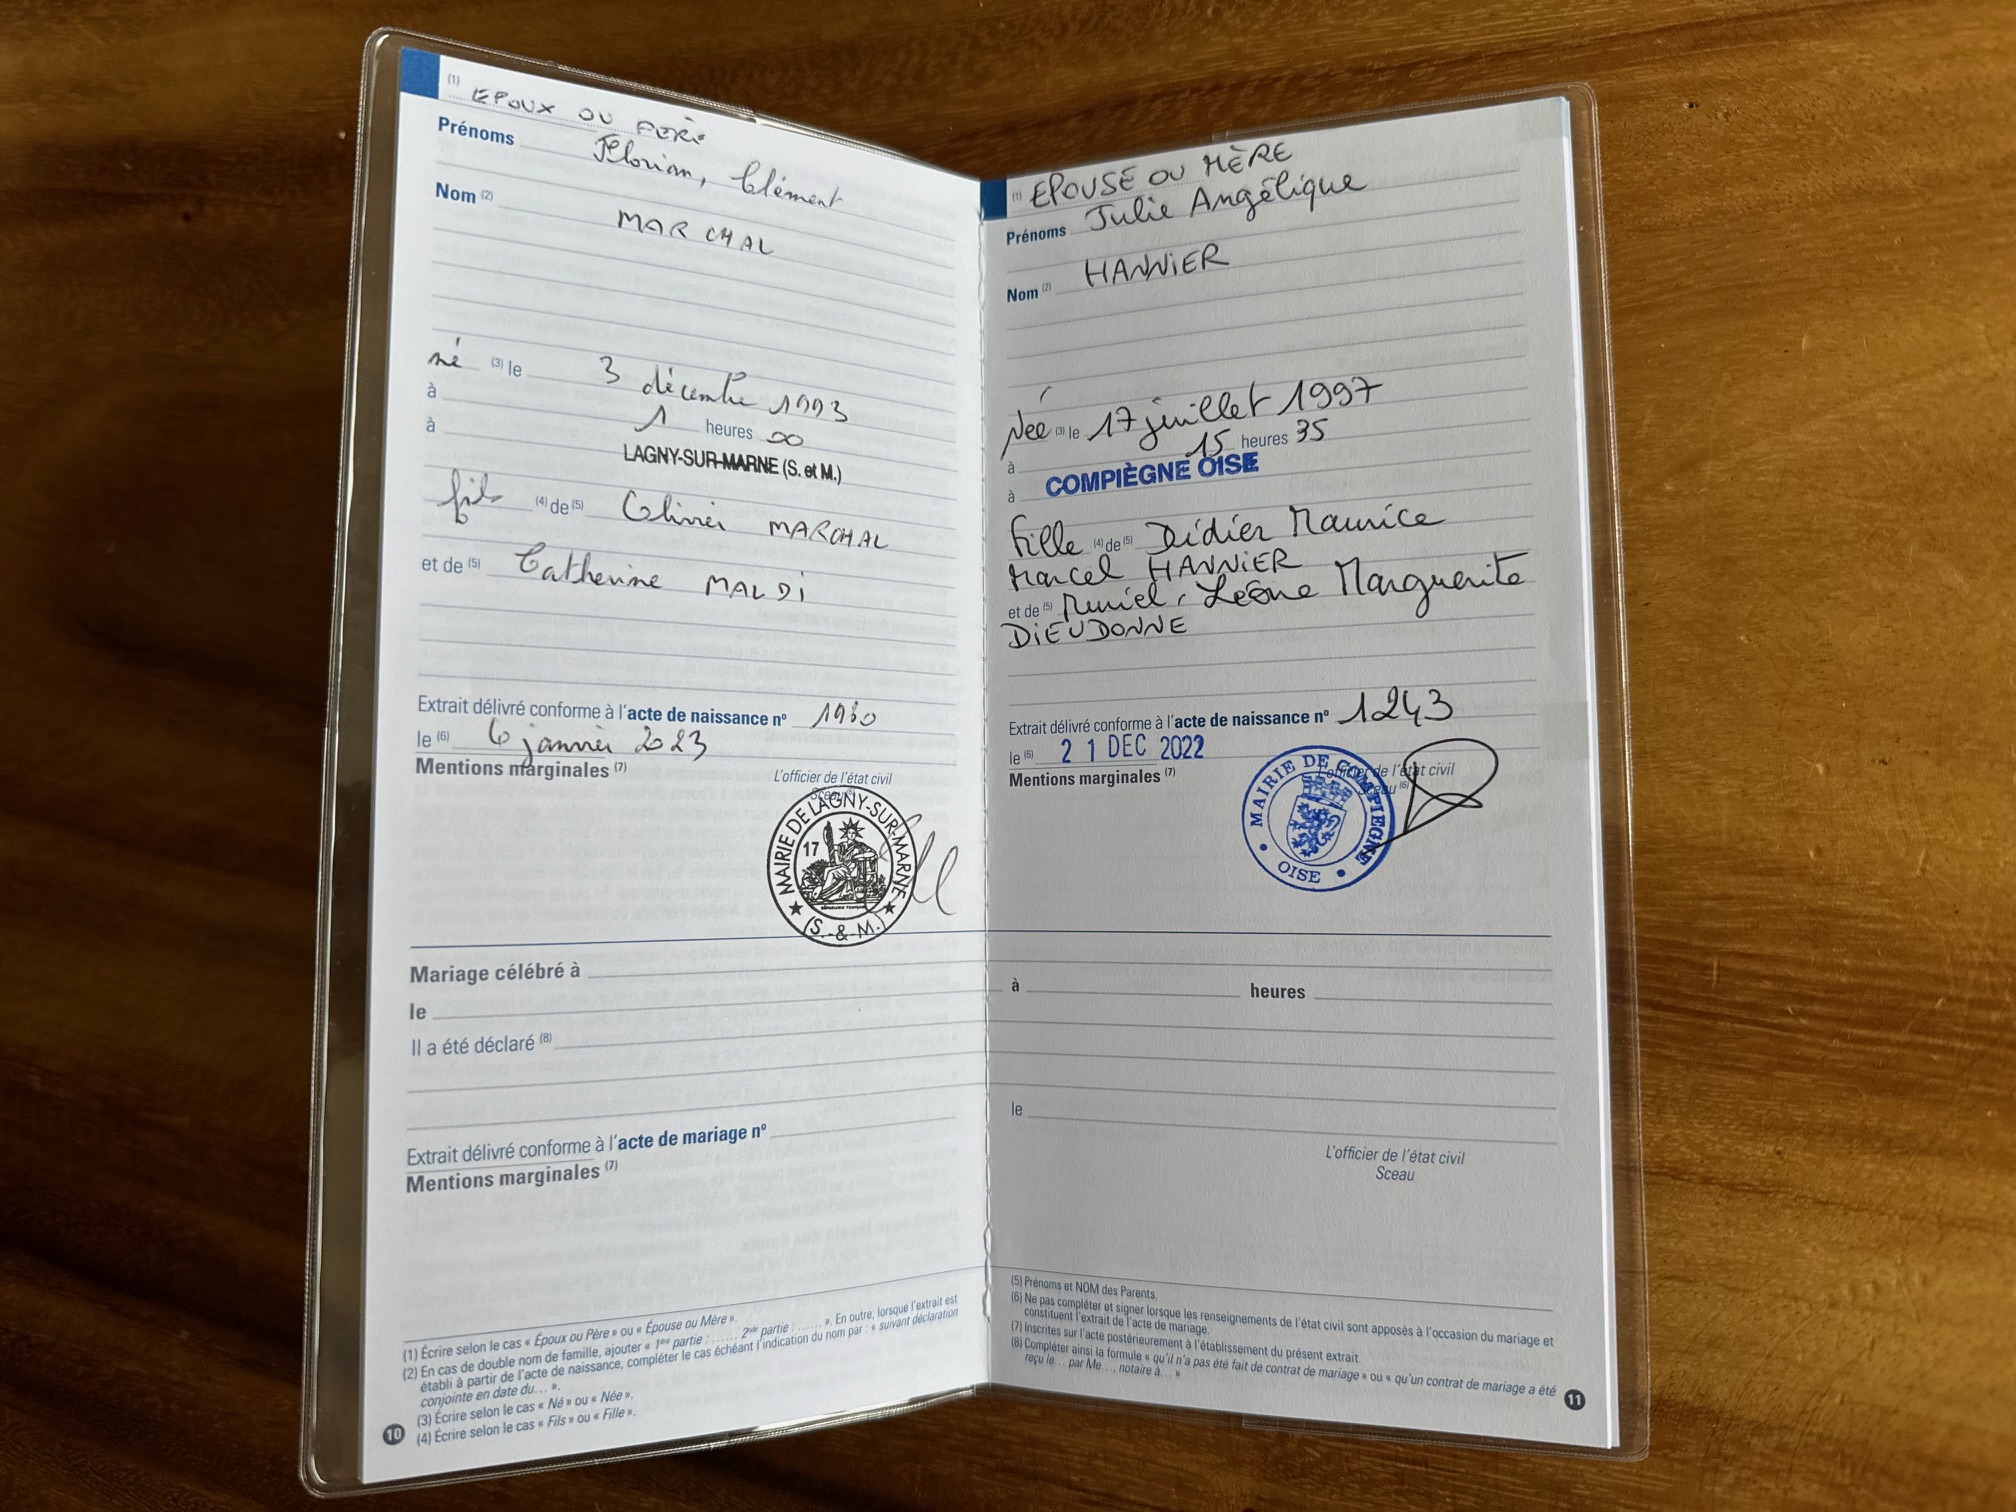 (1) EPOUX OU PERE
Prénoms Florian, Clément
Nom (2) MARCHAL
né (3) le 3 décembre 1993
à 1 heures 00
à LAGNY-SUR-MARNE (S. et M.)
fils (4) de (5) Olivier MARCHAL
et de (5) Catherine MALDI
Extrait délivré conforme à l'acte de naissance nº 1980
le (6) 6 janvier 2023
Mentions marginales (7)
L'officier de l'état civil
Sceau (6)
MAIRIE DE LAGNY-SUR-MARNE
17
RÉPUBLIQUE FRANÇAISE
(S. & M.)
Mariage célébré à
le
Il a été déclaré (8)
Extrait délivré conforme à l'acte de mariage nº
Mentions marginales (7)
(1) Écrire selon le cas « Époux ou Père » ou « Épouse ou Mère ».
(2) En cas de double nom de famille, ajouter « 1ère partie : ...... 2nde partie : ...... ». En outre, lorsque l'extrait est
établi à partir de l'acte de naissance, compléter le cas échéant l'indication du nom par : « suivant déclaration
conjointe en date du... ».
(3) Écrire selon le cas « Né » ou « Née ».
(4) Écrire selon le cas « Fils » ou « Fille ».
10
(1) EPOUSE OU MÈRE
Prénoms Julie Angélique
Nom (2) HANNIER
Née (3) le 17 juillet 1997
à 15 heures 35
à COMPIÈGNE OISE
Fille (4) de (5) Didier Maurice
Marcel HANNIER
et de (5) Muriel, Léone Marguerite
DIEUDONNE
Extrait délivré conforme à l'acte de naissance nº 1243
le (6) 21 DEC 2022
Mentions marginales (7)
L'officier de l'état civil
Sceau (6)
MAIRIE DE COMPIEGNE
OISE
à heures
le
L'officier de l'état civil
Sceau
(5) Prénoms et NOM des Parents.
(6) Ne pas compléter et signer lorsque les renseignements de l'état civil sont apposés à l'occasion du mariage et
constituent l'extrait de l'acte de mariage.
(7) Inscrites sur l'acte postérieurement à l'établissement du présent extrait.
(8) Compléter ainsi la formule « qu'il n'a pas été fait de contrat de mariage » ou « qu'un contrat de mariage a été
reçu le... par Me..., notaire à... »
11